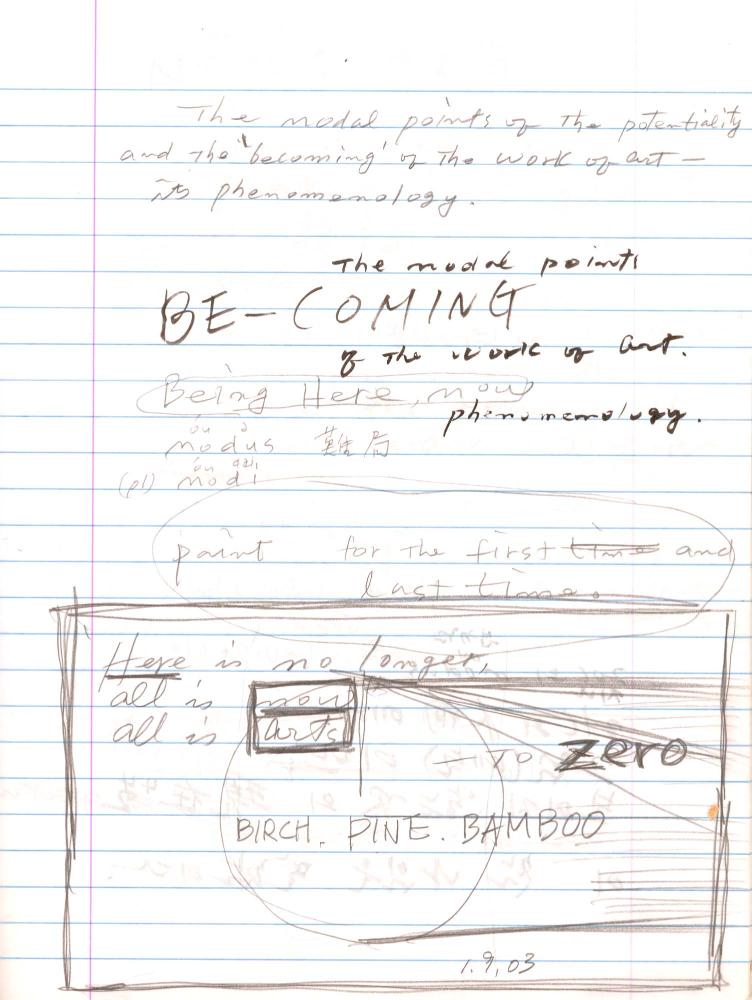 The modal points of the potentiality
and the 'becoming' of the work of art —
its phenomenology.
The modal points
BE-COMING
of the work of art.
Being Here, now
phenomenology.
modus 難局
(pl) modi
paint for the first time and
last time.
Here is no longer,
all is now
all is arts
— TO zero
BIRCH. PINE. BAMBOO
1.9,03